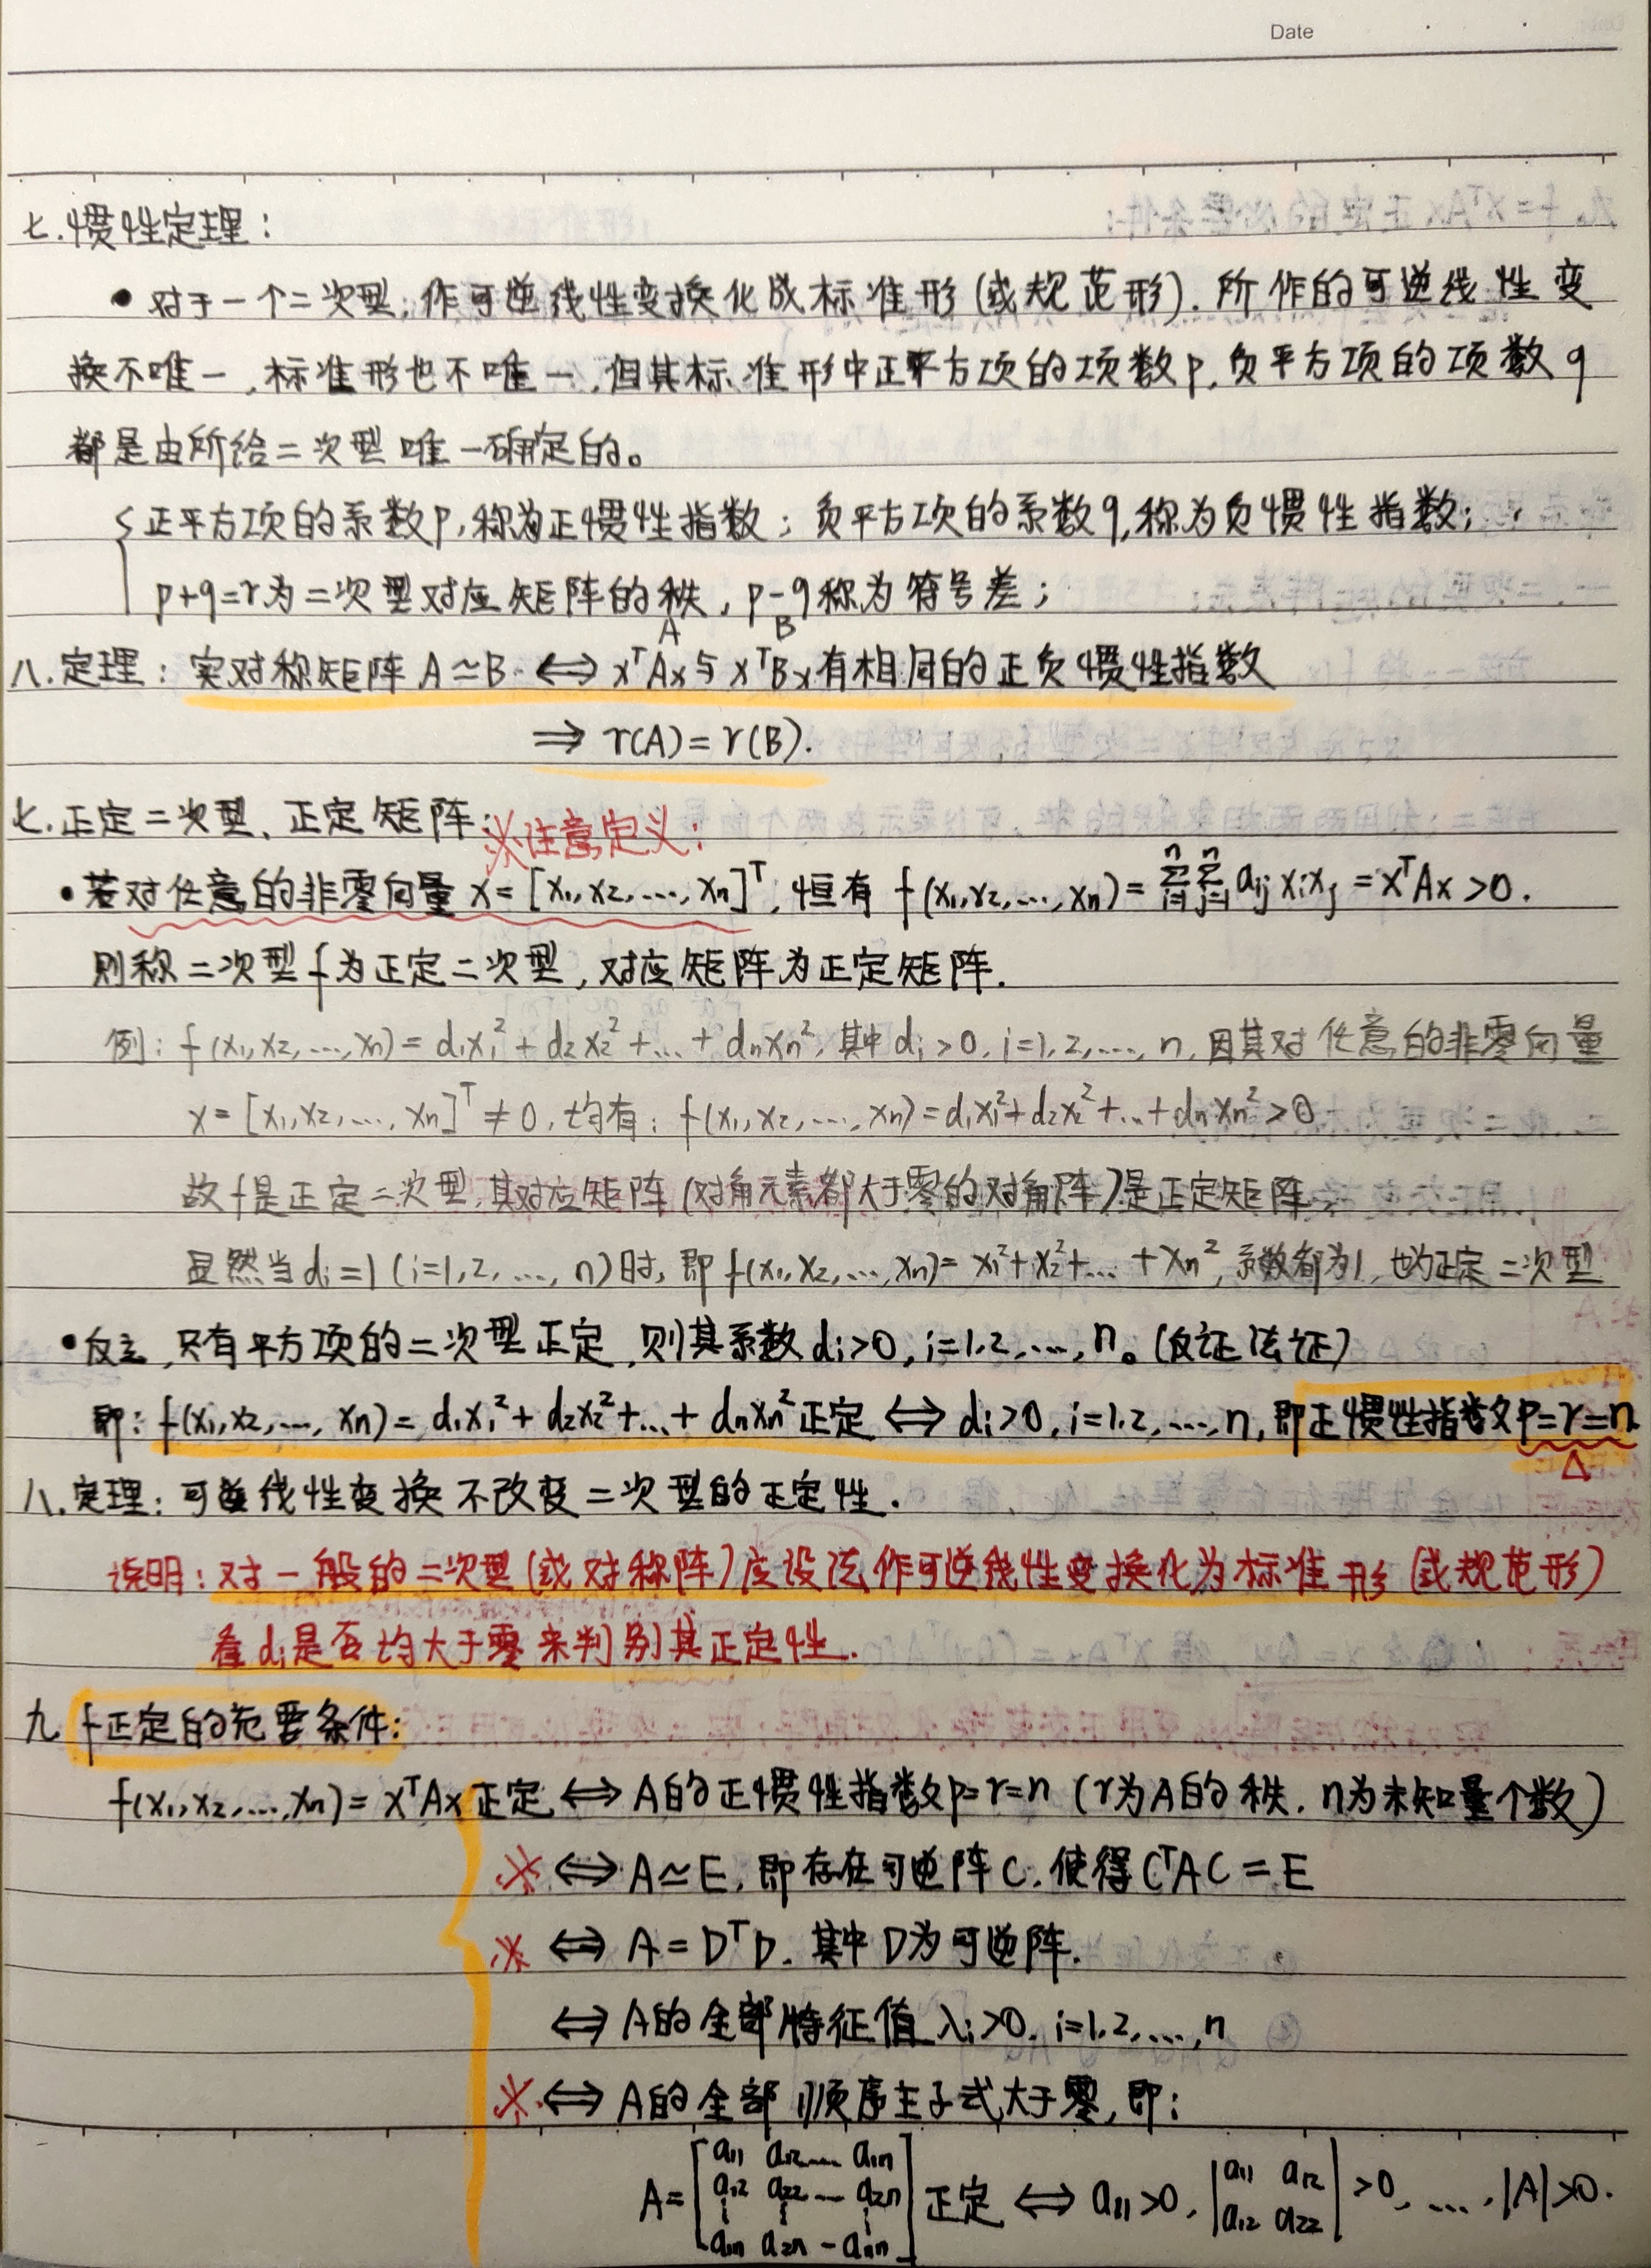 Date
七.惯性定理：
• 对于一个二次型,作可逆线性变换化成标准形(或规范形).所作的可逆线性变
换不唯一,标准形也不唯一,但其标准形中正平方项的项数p,负平方项的项数q
都是由所给二次型唯一确定的。
正平方项的系数p,称为正惯性指数；负平方项的系数q,称为负惯性指数；
p+q=r为二次型对应矩阵的秩, p-q称为符号差；
A B
八.定理：实对称矩阵 A≃B ⟺ xᵀAx与xᵀBx有相同的正负惯性指数
⟹ r(A)=r(B).
七.正定二次型、正定矩阵：
※注意定义：
•若对任意的非零向量 x=[x₁,x₂,...,xn]ᵀ,恒有 f(x₁,x₂,...,xn)=∑ⁿᵢ₌₁∑ⁿⱼ₌₁ aij xixj = xᵀAx >0.
则称二次型f为正定二次型,对应矩阵为正定矩阵.
例：f(x₁,x₂,...,xn)=d₁x₁²+d₂x₂²+...+dnxn²,其中di>0,i=1,2,...,n,因其对任意的非零向量
x=[x₁,x₂,...,xn]ᵀ≠0,均有：f(x₁,x₂,...,xn)=d₁x₁²+d₂x₂²+...+dnxn²>0
故f是正定二次型,其对应矩阵(对角元素都大于零的对角阵)是正定矩阵.
显然当di=1(i=1,2,...,n)时,即f(x₁,x₂,...,xn)=x₁²+x₂²+...+xn²,系数都为1,也为正定二次型
•反之,只有平方项的二次型正定,则其系数di>0,i=1,2,...,n。(反证法证)
即：f(x₁,x₂,...,xn)=d₁x₁²+d₂x₂²+...+dnxn²正定⟺di>0,i=1,2,...,n,即正惯性指数p=r=n
△
八.定理：可逆线性变换不改变二次型的正定性.
说明：对一般的二次型(或对称阵)应设法作可逆线性变换化为标准形(或规范形)
看di是否均大于零来判别其正定性.
九.f正定的充要条件：
f(x₁,x₂,...,xn)=xᵀAx正定⟺A的正惯性指数p=r=n (r为A的秩,n为未知量个数)
※ ⟺ A≃E,即存在可逆阵C,使得CᵀAC=E
※ ⟺ A=DᵀD.其中D为可逆阵.
⟺ A的全部特征值λi>0, i=1,2,...,n
※ ⟺ A的全部顺序主子式大于零,即：
A=[a₁₁ a₁₂ ... a₁n
a₁₂ a₂₂ ... a₂n
⋮ ⋮ ⋮
a₁n a₂n ... ann] 正定 ⟺ a₁₁>0, |a₁₁ a₁₂
a₁₂ a₂₂| >0, ..., |A|>0.